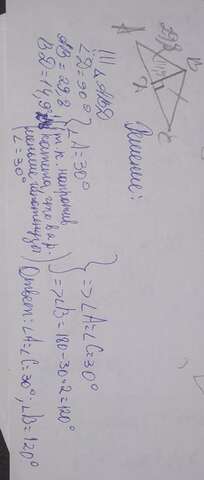 B
29,8
14,9
A
D
C
Решение:
1) Δ ABD
∠D = 90°
AB = 29,8
BD = 14,9
} ∠A = 30°
(т.к. напротив катета, что в 2 р. меньше гипотенузы ∠ = 30°)
} => ∠A = ∠C = 30°
=> ∠B = 180 - 30·2 = 120°
Ответ: ∠A = ∠C = 30°; ∠B = 120°